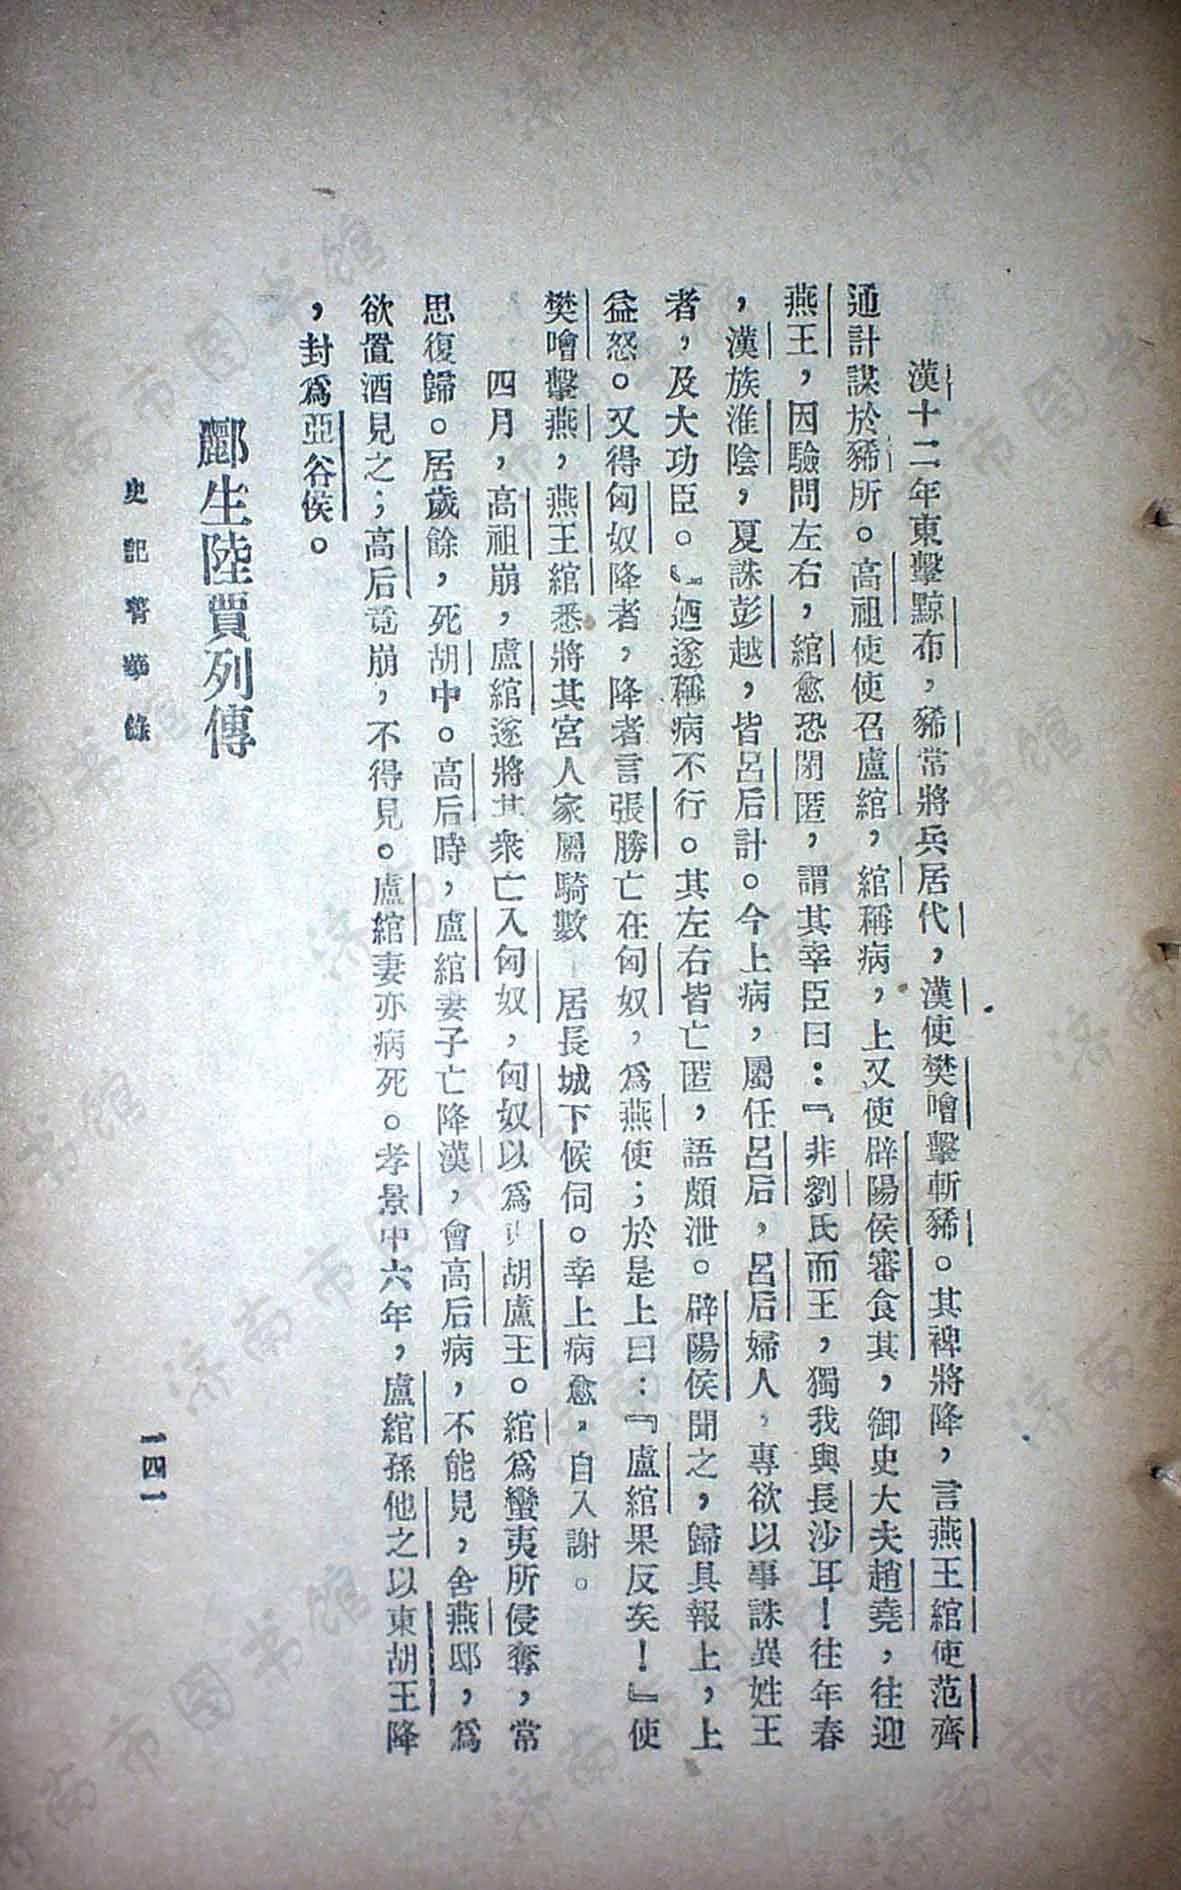 漢十二年東擊黥布，豨常將兵居代，漢使樊噲擊斬豨。其裨將降，言燕王綰使范齊
通計謀於豨所。高祖使使召盧綰，綰稱病，上又使辟陽侯審食其，御史大夫趙堯，往迎
燕王，因驗問左右，綰愈恐閉匿，謂其幸臣曰：『非劉氏而王，獨我與長沙耳！往年春
，漢族淮陰，夏誅彭越，皆呂后計。今上病，屬任呂后，呂后婦人，專欲以事誅異姓王
者，及大功臣。』迺遂稱病不行。其左右皆亡匿，語頗泄。辟陽侯聞之，歸具報上，上
益怒。又得匈奴降者，降者言張勝亡在匈奴，為燕使；於是上曰：『盧綰果反矣！』使
樊噲擊燕，燕王綰悉將其宮人家屬騎數　居長城下候伺。幸上病愈，自入謝。
四月，高祖崩，盧綰遂將其衆亡入匈奴，匈奴以為　胡盧王。綰為蠻夷所侵奪，常
思復歸。居歲餘，死胡中。高后時，盧綰妻子亡降漢，會高后病，不能見，舍燕邸，為
欲置酒見之；高后竟崩，不得見。盧綰妻亦病死。孝景中六年，盧綰孫他之以東胡王降
，封為亞谷侯。
酈生陸賈列傳
史記菁華錄
一四一
济南市图书馆